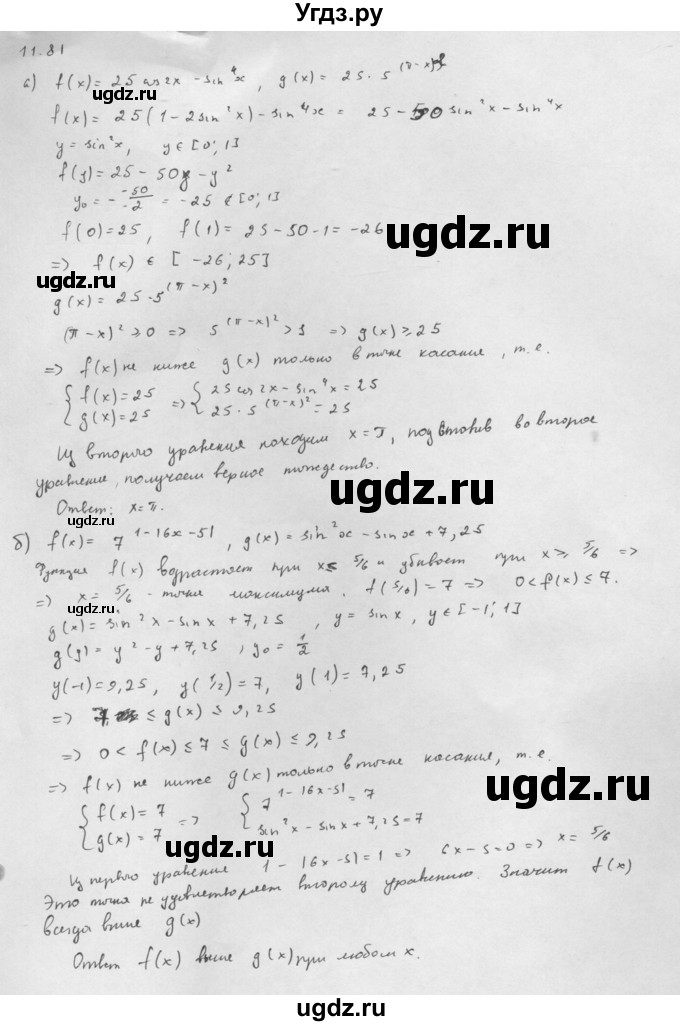 Угдз.ру
11.81
а) f(x) = 25 cos 2x - sin⁴x , g(x) = 25 · 5^(π-x)²
f(x) = 25(1 - 2sin²x) - sin⁴x = 25 - 50 sin²x - sin⁴x
y = sin²x, y ∈ [0; 1]
f(y) = 25 - 50y - y²
y₀ = - -50/-2 = -25 ∉ [0; 1]
f(0) = 25, f(1) = 25 - 50 - 1 = -26
=> f(x) ∈ [-26; 25]
g(x) = 25 · 5^(π-x)²
(π-x)² ≥ 0 => 5^(π-x)² > 1 => g(x) ≥ 25
=> f(x) не ниже g(x) только в точке касания, т.е.
{ f(x) = 25 => { 25 cos 2x - sin⁴x = 25
g(x) = 25 25 · 5^(π-x)² = 25
Из второго уравнения находим x = π, подставив во второе
уравнение, получаем верное тождество.
Ответ: x = π.
б) f(x) = 7^(1-|6x-5|), g(x) = sin²x - sin x + 7,25
Функция f(x) возрастает при x ≤ 5/6 и убывает при x ≥ 5/6 =>
=> x = 5/6 - точка максимума. f(5/6) = 7 => 0 < f(x) ≤ 7.
g(x) = sin²x - sin x + 7,25 , y = sin x, y ∈ [-1; 1]
g(y) = y² - y + 7,25 , y₀ = 1/2
y(-1) = 9,25, y(1/2) = 7, y(1) = 7,25
=> 7 ≤ g(x) ≤ 9,25
=> 0 < f(x) ≤ 7 ≤ g(x) ≤ 9,25
=> f(x) не ниже g(x) только в точке касания, т.е.
{ f(x) = 7 => { 7^(1-|6x-5|) = 7
g(x) = 7 sin²x - sin x + 7,25 = 7
Из первого уравнения 1 - |6x-5| = 1 => 6x-5=0 => x = 5/6
Это точка не удовлетворяет второму уравнению. Значит f(x)
всегда выше g(x)
Ответ f(x) выше g(x) при любом x.
ugdz.ru
ugdz.ru
ugdz.ru
ugdz.ru
ugdz.ru
ugdz.ru
ugdz.ru
ugdz.ru